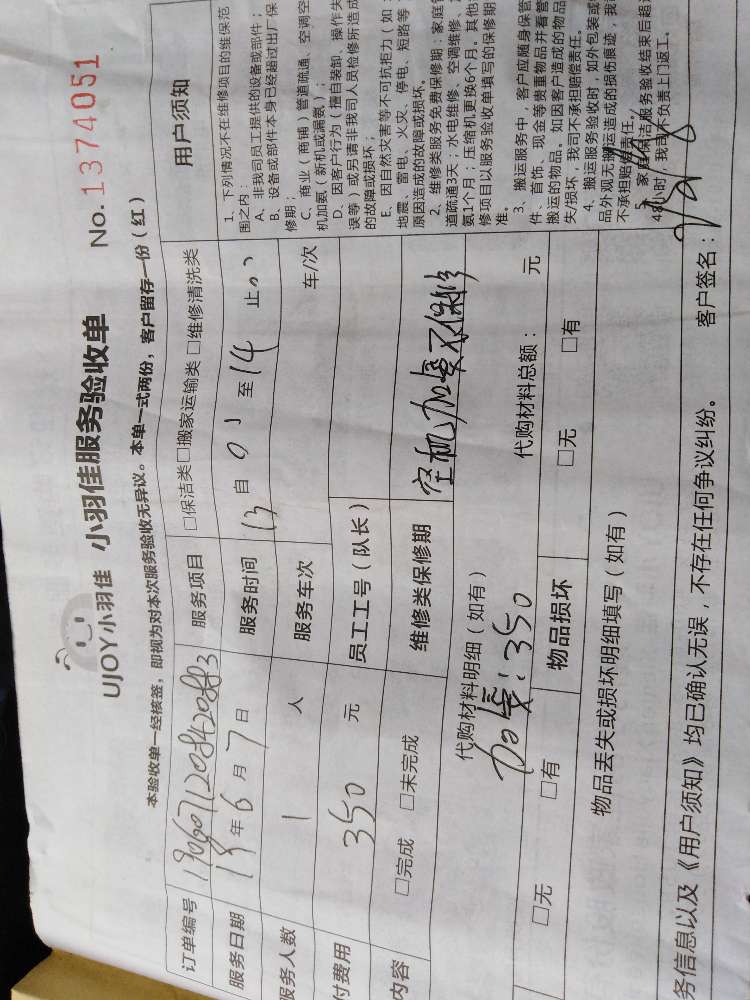 UJOY小羽佳 小羽佳服务验收单 No.1374051
本验收单一经核签，即视为对本次服务验收无异议。本单一式两份，客户留存一份（红）
订单编号 服务项目 □保洁类□搬家运输类 □维修清洗类
服务日期 19年6月7日 服务时间 13自01至14止00
务人数 1 人 服务车次 车/次
付费用 350 元 员工工号（队长）
内容 □完成 □未完成 维修类保修期 空机加氨不保修
代购材料明细（如有） 代购材料总额： 元
加氨：350
□无 □有 物品损坏 □无 □有
物品丢失或损坏明细填写（如有）
务信息以及《用户须知》均已确认无误，不存在任何争议纠纷。 客户签名：
用户须知
1、下列情况不在维修项目的维保范
围之内：
A、非我司员工提供的设备或部件；
B、设备或部件本身已经超过出厂保
修期；
C、商业（商铺）管道疏通、空调空
机加氨（新机或漏氨）；
D、因客户行为（擅自装卸、操作失
误等）或另请非我司人员检修所造成
的故障或损坏；
E、因自然灾害等不可抗拒力（如：
地震、雷电、火灾、停电、短路等
原因造成的故障或损坏。
2、维修类服务免费保修期：家庭管
道疏通3天；水电维修、空调维修、
氨1个月；压缩机更换6个月。其他
修项目以服务验收单填写的保修期
准。
3、搬运服务中，客户应随身保管
件、首饰、现金等贵重物品并看管
搬运的物品。如因客户造成的物品
失/损坏，我司不承担赔偿责任。
4、搬运服务验收时，如外包装或
品外观无搬运造成的损伤痕迹，我
不承担赔偿责任。
5、家庭保洁服务验收结束后超
48小时，我司不负责上门返工。